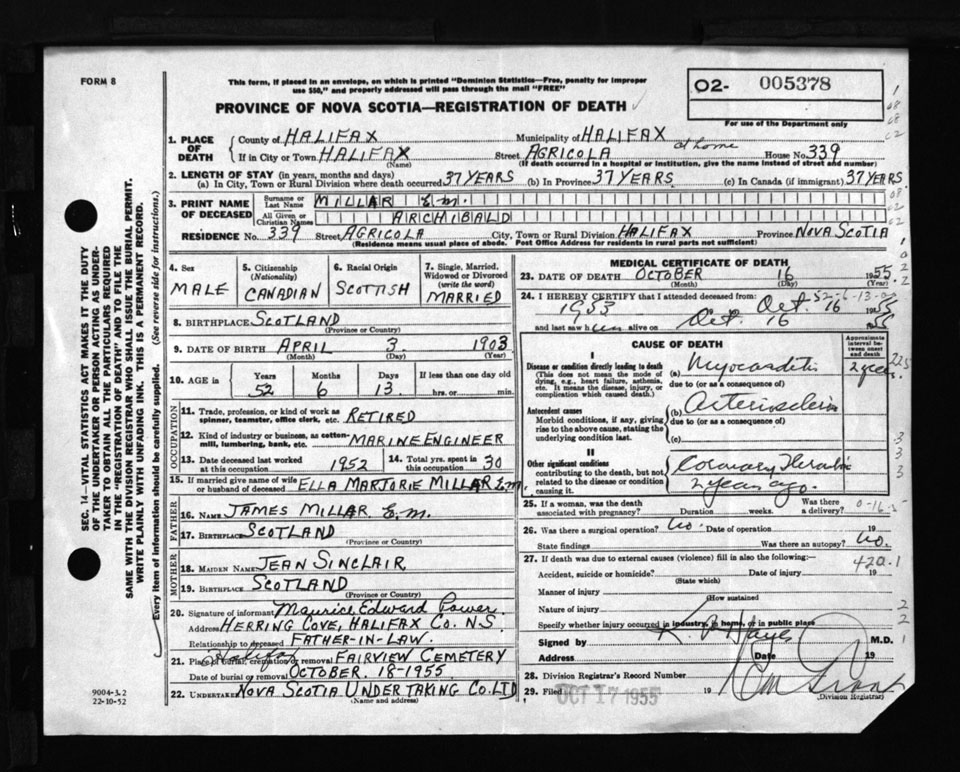 FORM 8
This form, if placed in an envelope, on which is printed "Dominion Statistics—Free, penalty for improper
use $50," and properly addressed will pass through the mail "FREE"
PROVINCE OF NOVA SCOTIA—REGISTRATION OF DEATH
02- 005378
For use of the Department only
1. PLACE OF DEATH
County of HALIFAX Municipality of HALIFAX
at home
If in City or Town HALIFAX (Name) Street AGRICOLA House No. 339
(If death occurred in a hospital or institution, give the name instead of street and number)
2. LENGTH OF STAY (in years, months and days)
(a) In City, Town or Rural Division where death occurred 37 YEARS (b) In Province 37 YEARS (c) In Canada (if immigrant) 37 YEARS
3. PRINT NAME OF DECEASED
Surname or Last Name MILLAR E.M.
All Given or Christian Names ARCHIBALD
RESIDENCE No. 339 Street AGRICOLA City, Town or Rural Division HALIFAX Province NOVA SCOTIA
(Residence means usual place of abode. Post Office Address for residents in rural parts not sufficient)
4. Sex
MALE
5. Citizenship (Nationality)
CANADIAN
6. Racial Origin
SCOTTISH
7. Single, Married, Widowed or Divorced (write the word)
MARRIED
8. BIRTHPLACE SCOTLAND
(Province or Country)
9. DATE OF BIRTH APRIL 3 1903
(Month) (Day) (Year)
10. AGE in Years Months Days If less than one day old
52 6 13 hrs. or min.
OCCUPATION
11. Trade, profession, or kind of work as spinner, teamster, office clerk, etc. RETIRED
12. Kind of industry or business, as cotton-mill, lumbering, bank, etc. MARINE ENGINEER
13. Date deceased last worked at this occupation 1952
14. Total yrs. spent in this occupation 30
15. If married give name of wife or husband of deceased ELLA MARJORIE MILLAR E.M.
FATHER
16. NAME JAMES MILLAR E.M.
17. BIRTHPLACE SCOTLAND
(Province or Country)
MOTHER
18. MAIDEN NAME JEAN SINCLAIR
19. BIRTHPLACE SCOTLAND
(Province or Country)
20. Signature of informant Maurice Edward Power
Address HERRING COVE, HALIFAX CO. N.S.
Relationship to deceased FATHER-IN-LAW.
Halifax
21. Place of burial, cremation or removal FAIRVIEW CEMETERY
Date of burial or removal OCTOBER. 18-1955
22. UNDERTAKER NOVA SCOTIA UNDERTAKING CO. LTD
(Name and address)
MEDICAL CERTIFICATE OF DEATH
23. DATE OF DEATH OCTOBER 16 1955
(Month) (Day) (Year)
52-6-13-0
24. I HEREBY CERTIFY that I attended deceased from:
1953 Oct. 16 1955
and last saw him alive on Oct. 16 1955
CAUSE OF DEATH
Approximate interval between onset and death
I
Disease or condition directly leading to death
(This does not mean the mode of dying, e.g., heart failure, asthenia, etc. It means the disease, injury, or complication which caused death.)
(a) Myocarditis 2 years
due to (or as a consequence of)
Antecedent causes
Morbid conditions, if any, giving rise to the above cause, stating the underlying condition last.
(b) Arteriosclerosis
due to (or as a consequence of)
(c)
II
Other significant conditions
contributing to the death, but not related to the disease or condition causing it.
Coronary Thrombosis
2 years ago.
25. If a woman, was the death associated with pregnancy? Duration weeks. Was there a delivery?
0-16
26. Was there a surgical operation? No. Date of operation 19
State findings Was there an autopsy? No.
27. If death was due to external causes (violence) fill in also the following: 420.1
Accident, suicide or homicide? Date of injury 19
(State which)
Manner of injury
(How sustained
Nature of injury
Specify whether injury occurred in industry, in home, or in public place
Signed by M.D.
Address Date 19
28. Division Registrar's Record Number
29. Filed OCT 17 1955 19
(Division Registrar)
SEC. 14—VITAL STATISTICS ACT MAKES IT THE DUTY
OF THE UNDERTAKER OR PERSON ACTING AS UNDER-
TAKER TO OBTAIN ALL THE PARTICULARS REQUIRED
IN THE "REGISTRATION OF DEATH" AND TO FILE THE
SAME WITH THE DIVISION REGISTRAR WHO SHALL ISSUE THE BURIAL PERMIT.
WRITE PLAINLY WITH UNFADING INK. THIS IS A PERMANENT RECORD.
Every item of information should be carefully supplied. (See reverse side for instructions.)
9004-3.2
22-10-52